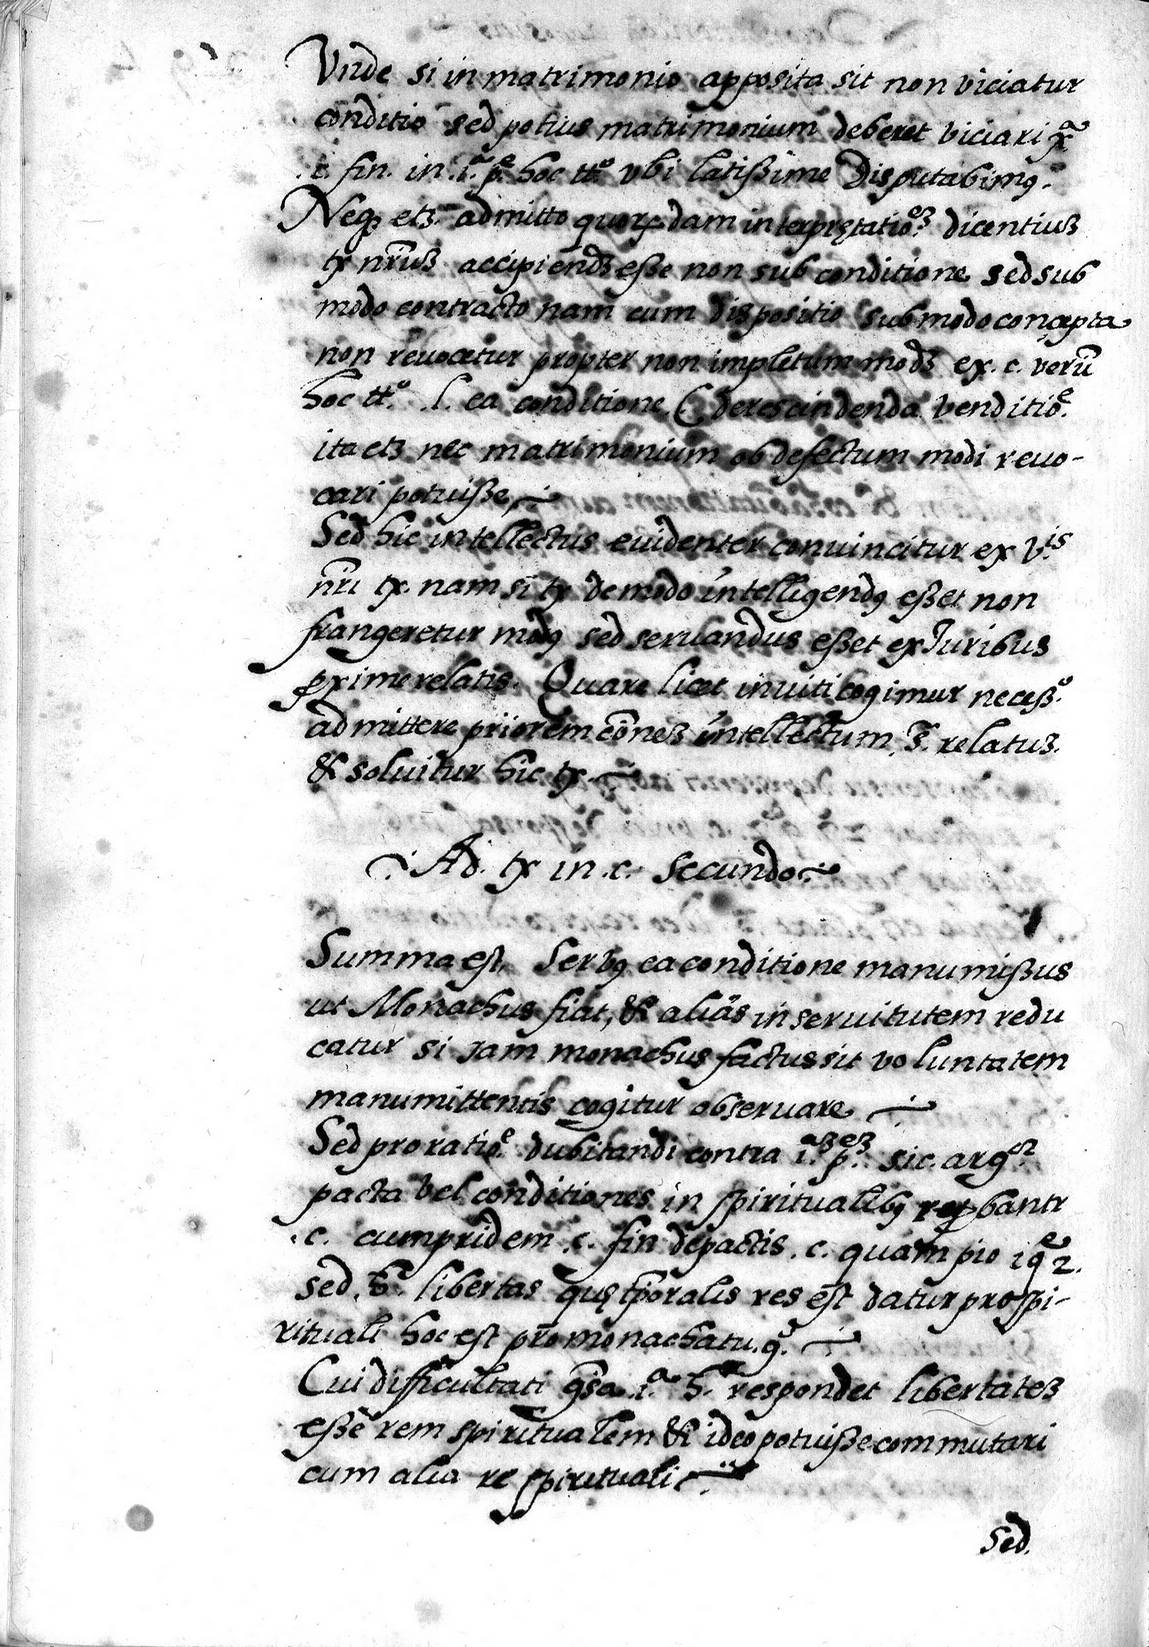 Vnde si in matrimonio apposita sit non viciatur
conditio sed potius matrimonium deberet viciari
c. fin. in .i.ª p.ᵉ hoc tt.º vbi latißime Disputabimꝰ.
Neqꝫ etꝫ admitto quorꝝdam interprętatioᵉꝫ dicentiuꝫ
tx nr̃uꝫ accipiendꝫ eße non sub conditione sed sub
modo contracto nam cum dispositio sub modo concępta
non reuocetur propter non impletum modꝫ ex. c. verũ
hoc tt.º .l. ea conditione C de rescindenda venditioᵉ.
ita etꝫ nec matrimonium ob defectum modi reuo-
cari potuiße,
Sed hic intellectus euidenter conuincitur ex v.ⁱˢ
nr̃i tx. nam si tx de modo intelligendꝰ eßet non
frangeretur modꝰ sed seruandus eßet ex Juribus
ꝓxime relatis. Quare licet inuiti cogimur neceß.º
admittere priorem cõneꝫ intellectum .s̃. relatuꝫ.
& soluitur hic tx.
Ad. tx in .c. secundo.
Summa est, Serbꝰ ea conditione manumißus
ut Monachus fiat, & aliàs in seruitutem redu
catur si jam monachus factus sit voluntatem
manumittentis cogitur obseruare
Sed pro ratioᵉ. dubitandi contra i.ªꝫ p.ᵉꝫ sic. arg.ᵒʳ
pacta vel conditiones in spiritualibꝰ reꝓbantr
.c. cum pridem .c. fin de pactis .c. quam pio i q̃ 2.
sed .h̃. libertas quę tp̃oralis res est datur pro spi-
rituali hoc est pro monachatu. g.
Cui difficultati gl̃sa .i.ª h̃.ª respondet libertateꝫ
eße rem spiritualem & ideo potuiße commutari
cum alia re spirituali
Sed.